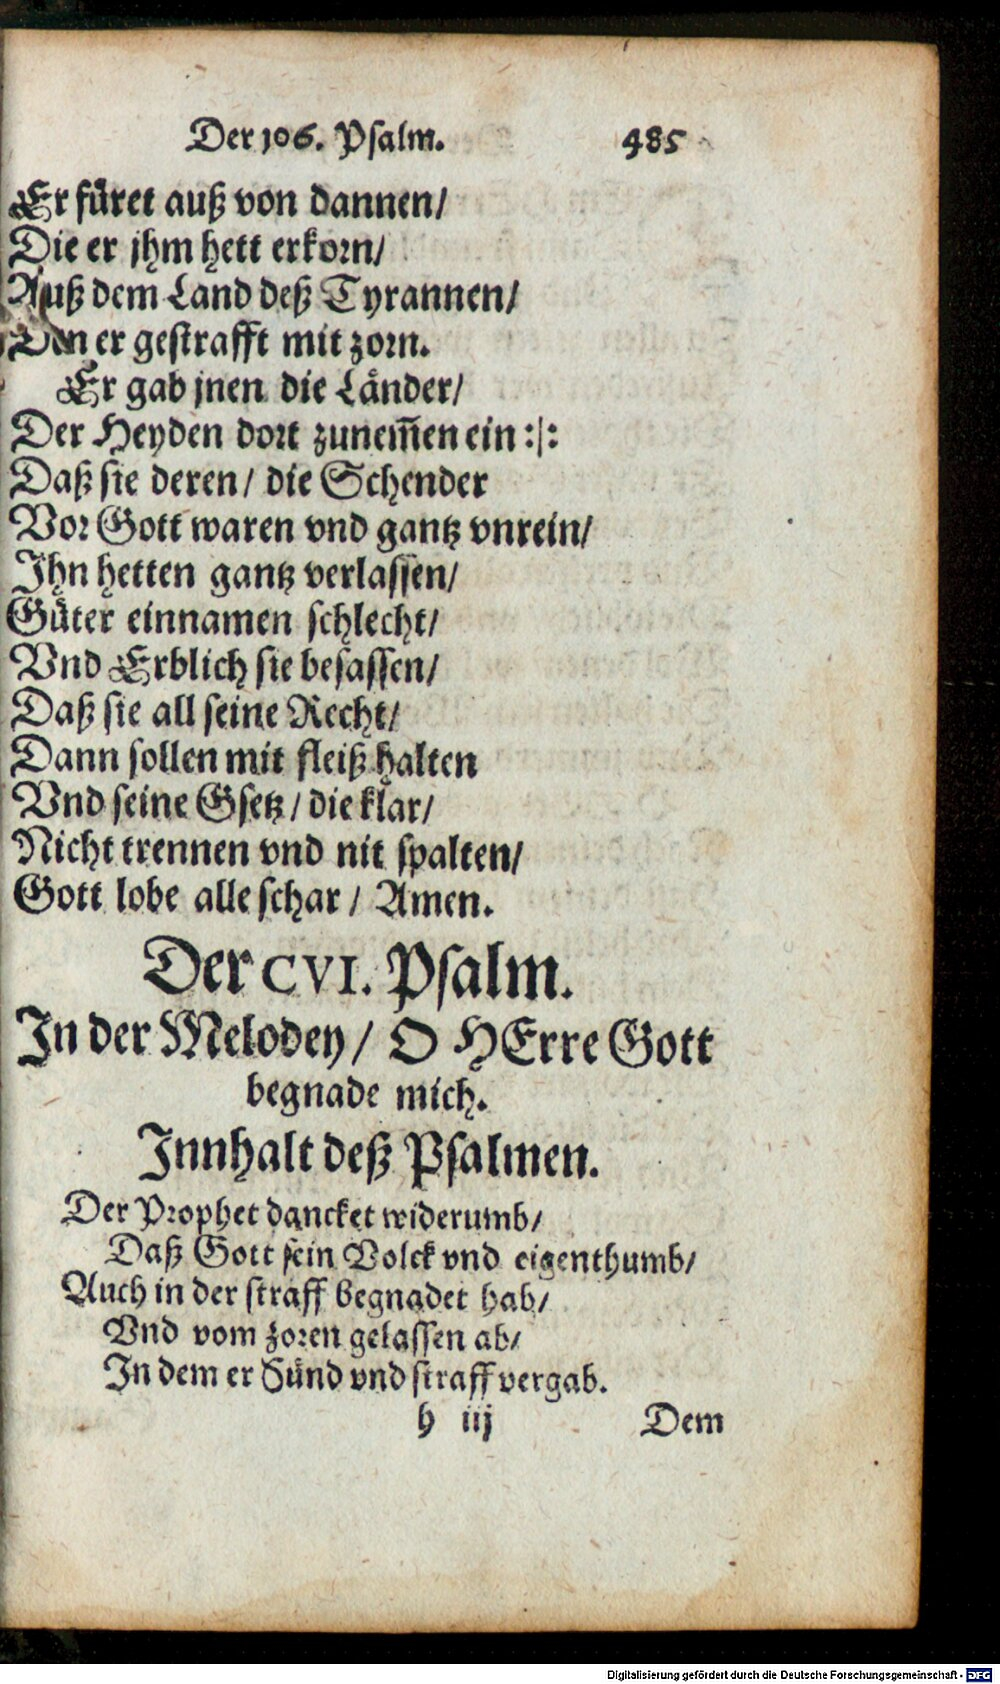 Der 106. Psalm. 485
Er füret auß von dannen/
Die er jhm hett erkorn/
Auß dem Land deß Tyrannen/
Den er gestrafft mit zorn.
Er gab jnen die Länder/
Der Heyden dort zunem̃en ein :/:
Daß sie deren/ die Schender
Vor Gott waren vnd gantz vnrein/
Ihn hetten gantz verlassen/
Güter einnamen schlecht/
Vnd Erblich sie besassen/
Daß sie all seine Recht/
Dann sollen mit fleiß halten
Vnd seine Gsetz/ die klar/
Nicht trennen vnd nit spalten/
Gott lobe alle schar/ Amen.
Der CVI. Psalm.
In der Melodey/ O HErre Gott
begnade mich.
Innhalt deß Psalmen.
Der Prophet dancket widerumb/
Daß Gott sein Volck vnd eigenthumb/
Auch in der straff begnadet hab/
Vnd vom zoren gelassen ab/
In dem er Sünd vnd straff vergab.
h iij Dem
Digitalisierung gefördert durch die Deutsche Forschungsgemeinschaft - DFG